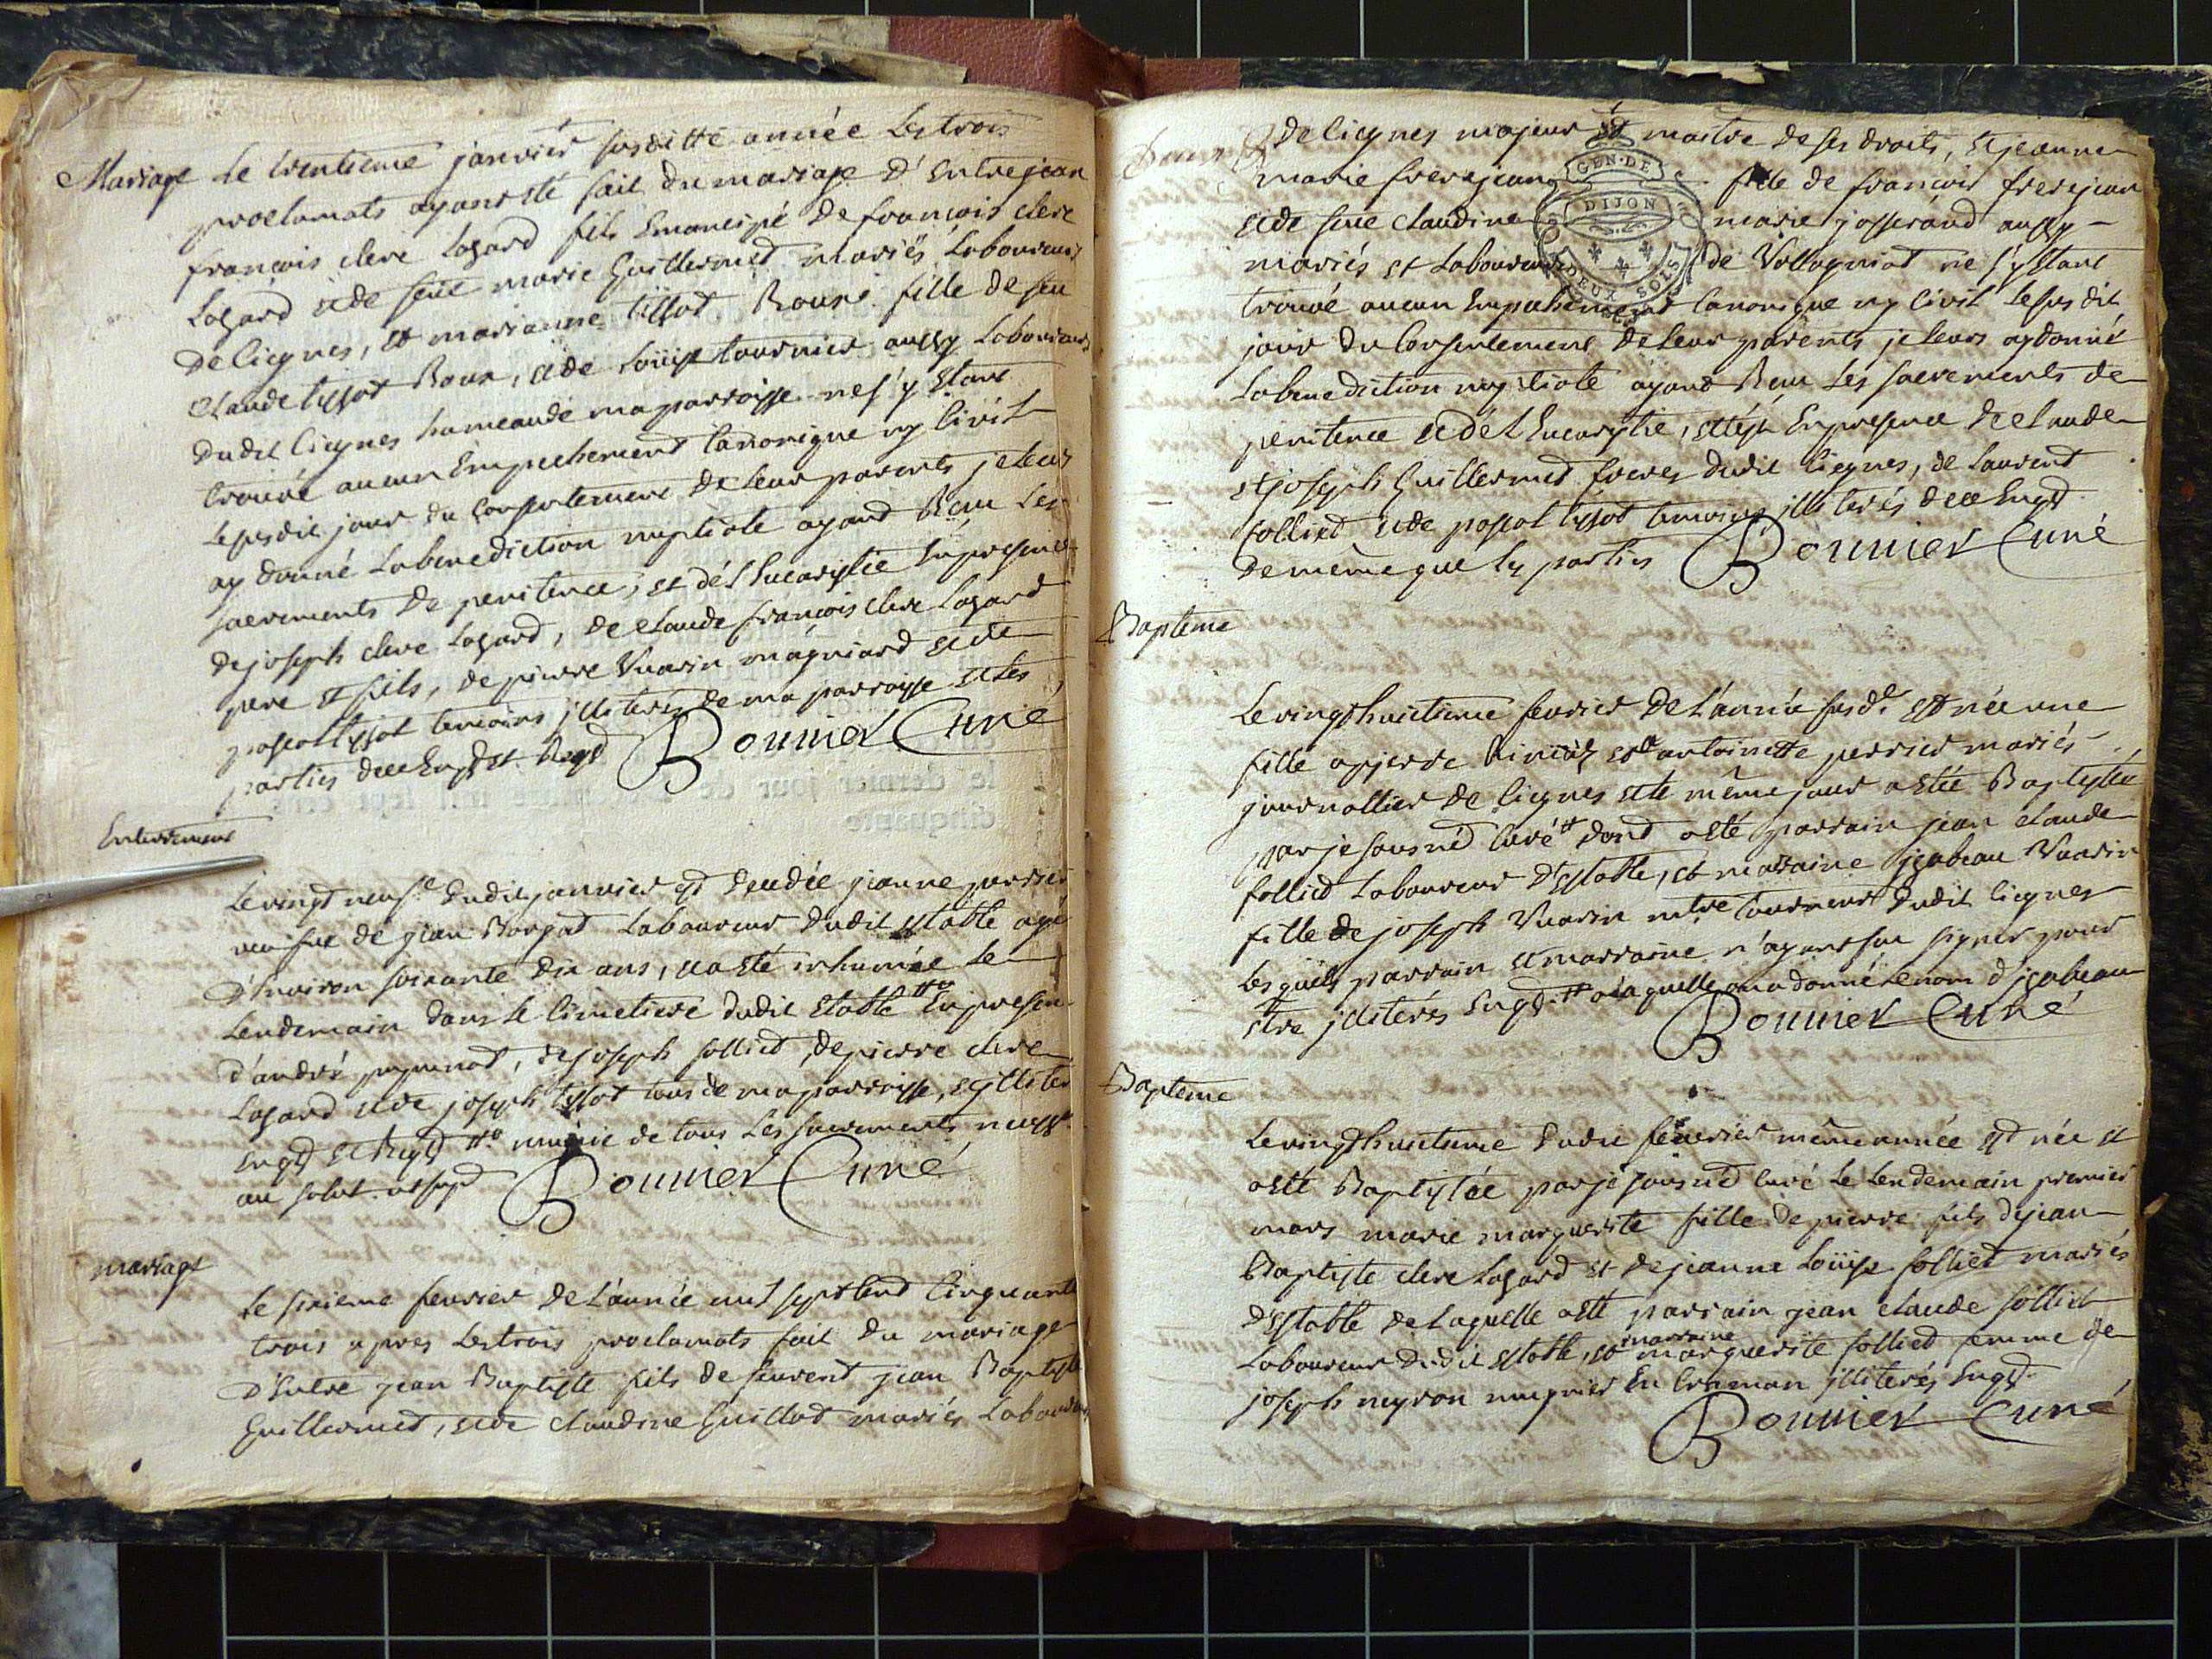 Mariage
Le trentieme janvier susditte année les trois
proclamats ayant été fait du mariage d'Entre jean
françois clerc Lazard fils Emancipé de françois clerc
Lazard et de feüe marie Guillermet mariés Laboureurs
de licynes, et marianne tissot Rouxe fille de feu
claude tissot Roux, et de Loüise tournier aussy Laboureurs
dudit licynes hameau de ma parroisse ne s'y Etant
trouvé aucun Empechement Canonique ny Civil
le susdit jour du Consentement de leur parents je leur
ay donné la benediction nuptiale ayant Recu Les
sacrements de penitence, et de l'Eucaristie En presence
de joseph clerc Lazard, de claude françois clerc Lazard
pere et fils, de pierre Vuarin magniard et de
pascal tissot temoins illiterés de ma parroisse et Les
parties de ce Enqs et Reqs Bonnier Curé
Enterrement
Le vingt neufe dudit janvier est decedée jeanne perrier
veufve de jean Borgat Laboureur dudit Estable agé
d'Environ soixante dix ans, et a Eté inhumée Le
Lendemain dans le Cimetiere dudit Estable En presence
d'andré , de joseph follied, de pierre clerc
Lazard et de joseph tissot tous de ma parroisse, et illiter
Enqs et Reqs munie de tous Les sacrements necess
au salut Bonnier Curé
mariage
Le sixieme fevrier de L'année mil sept Cent Cinquante
trois apres Les trois proclamats fait du mariage
d'Entre jean Baptiste fils de jean Baptiste
Guillermet, et de claudine Guillot mariés Laboureurs
de licynes majeur et maitre de ses droits, et jeanne
marie frerejean fille de françois frerejean
et de feüe claudine marie josserand aussy
mariés et Laboureurs de Vollogniat ne s'y Etant
trouvé aucun Empechement Canonique ny Civil le susdit
jour du Consentement de leur parents je leurs ay donné
La benediction nuptiale ayant Recu Les sacrements de
penitence et de l'Eucaristie, En presence de claude
et joseph Guillermet freres dudit licynes, de Laurent
follied et de pascal tissot temoins illiterés de ce Enqs
de même que les parties Bonnier Curé
Bapteme
Le vingt huitieme fevrier de L'année susde est née une
fille a pierre et a antoinette perrier mariés
journallier de licynes et le même jour a Eté Baptisée
par je sousné Curé dont a Eté parrain jean claude
follied Laboureur d'Estable, et marraine izabeau Vuarin
fille de joseph Vuarin dudit licynes
Les quels parrain et marraine n'ayant sçu signer pour
Etre illiterés Enqs a laquelle on a donné le nom d'izabeau
Bonnier Curé
Bapteme
Le vingt huitieme dudit fevrier même année est née et
a Eté Baptisée par je sousné Curé Le Lendemain premier
mars marie marguerite fille de pierre fils de jean
Baptiste clerc Lazard et de jeanne Loüise follied mariés
d'Estable de Laquelle a Eté parrain jean claude follied
Laboureur dudit Estable, et marraine marguerite follied femme de
joseph neyron illiterés Enqs
Bonnier Curé
GEN. DE
DIJON
DEUX SOLS